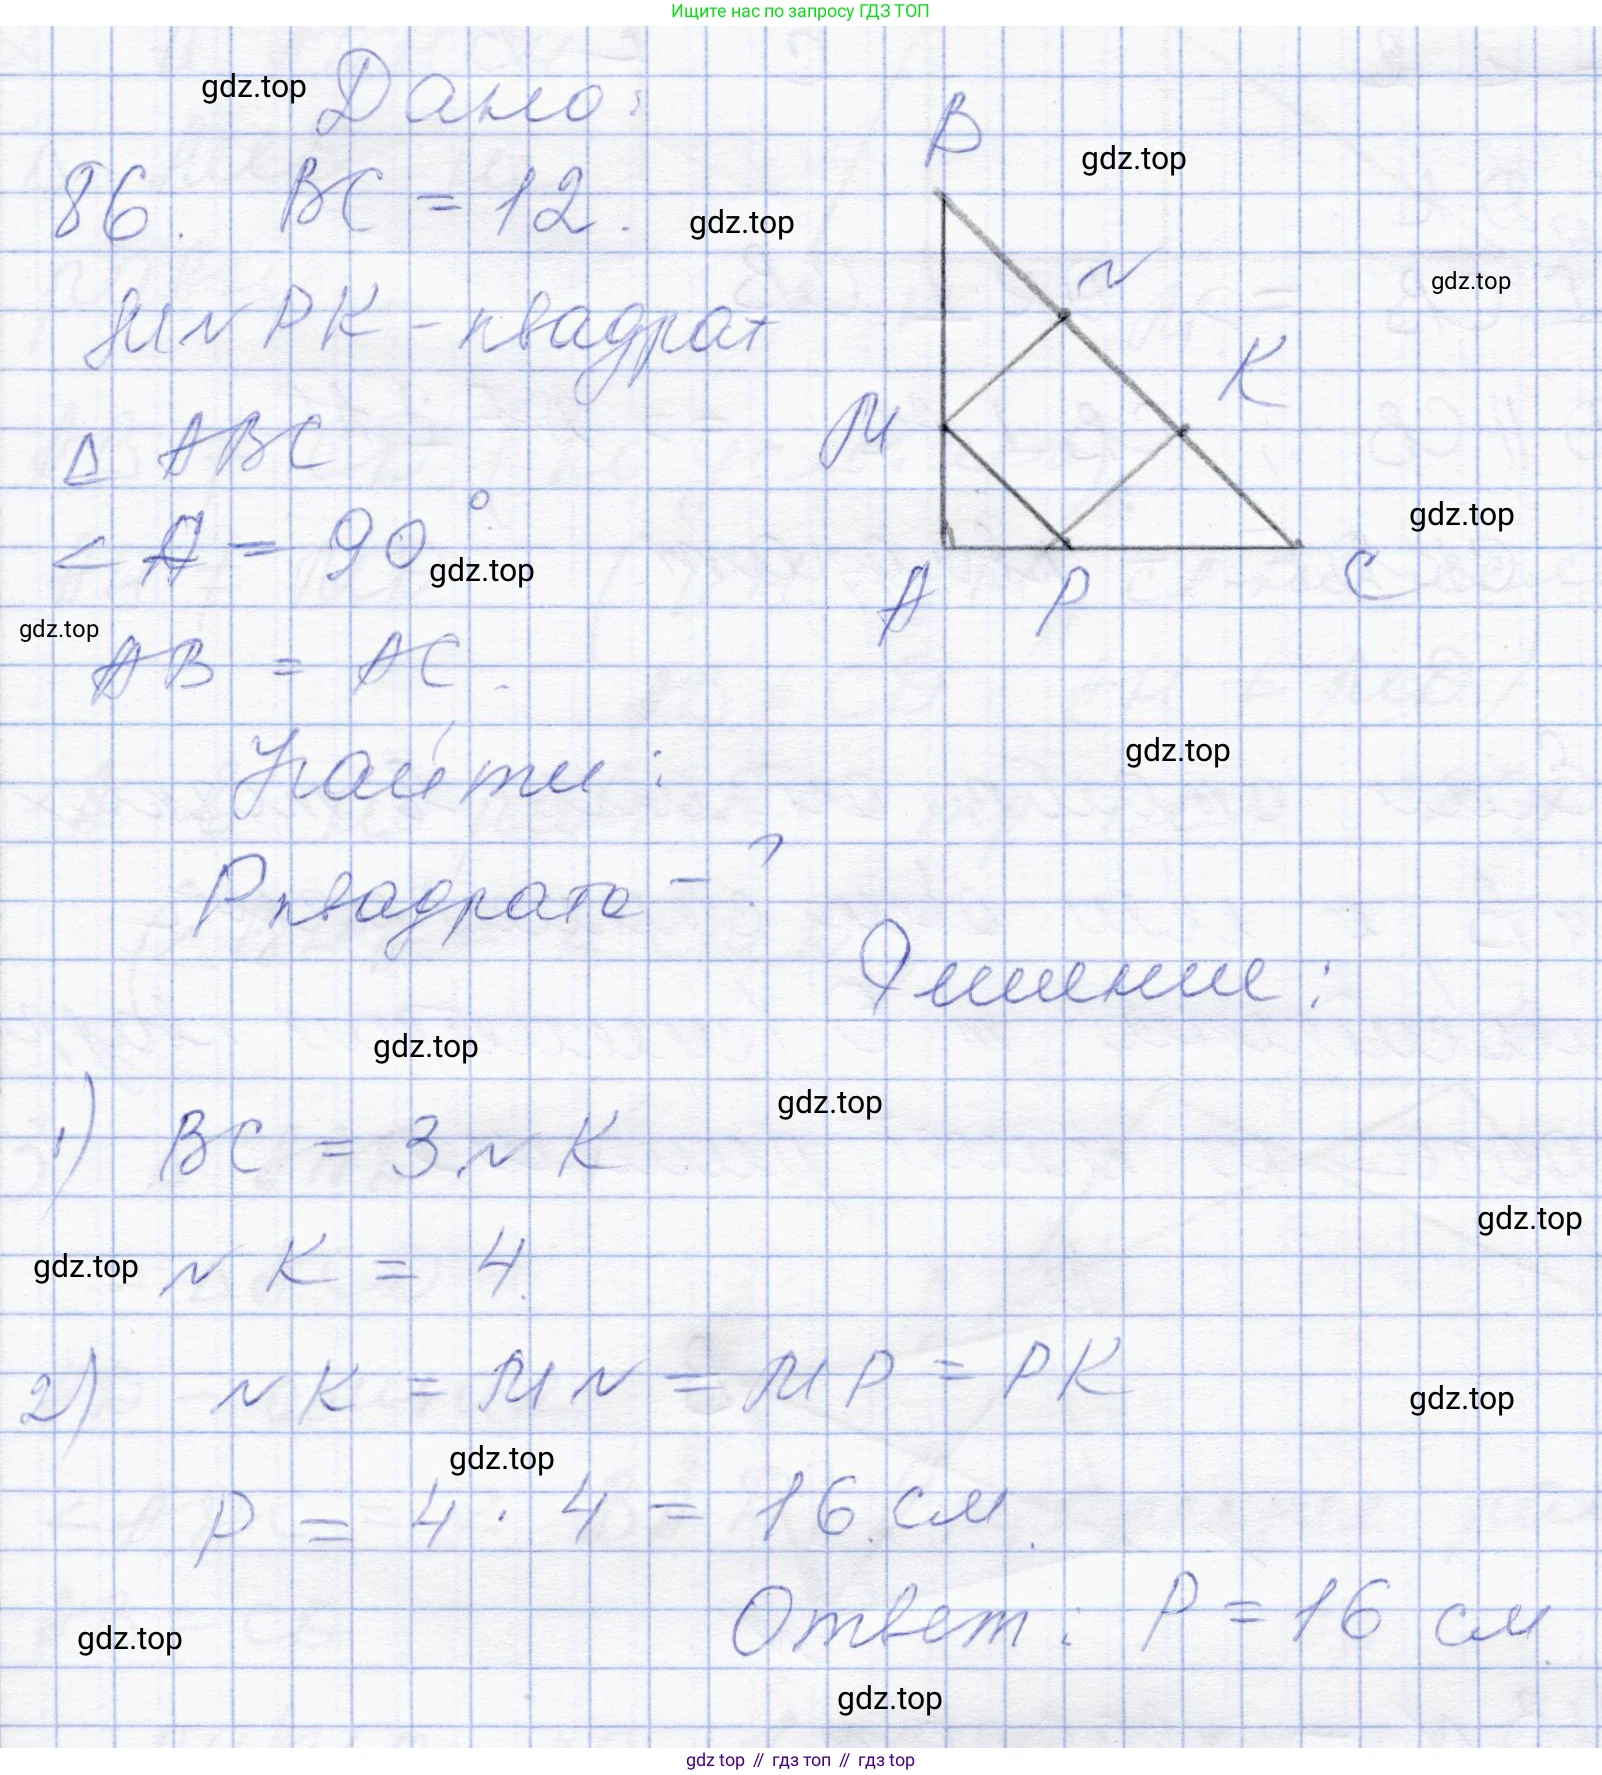 Ищите нас по запросу ГДЗ ТОП
gdz.top
Дано:
B
gdz.top
86. BC = 12.
gdz.top
N
gdz.top
MNPK - квадрат
K
M
Δ ABC
gdz.top
< A = 90°
gdz.top
A P C
gdz.top
AB = AC.
Найти:
gdz.top
Pквадрата - ?
Решение:
gdz.top
gdz.top
1) BC = 3NK
gdz.top
gdz.top
NK = 4.
2) NK = MN = MP = PK
gdz.top
gdz.top
P = 4 · 4 = 16 см.
Ответ: P = 16 см.
gdz.top
gdz.top
gdz top // гдз топ // gdz top